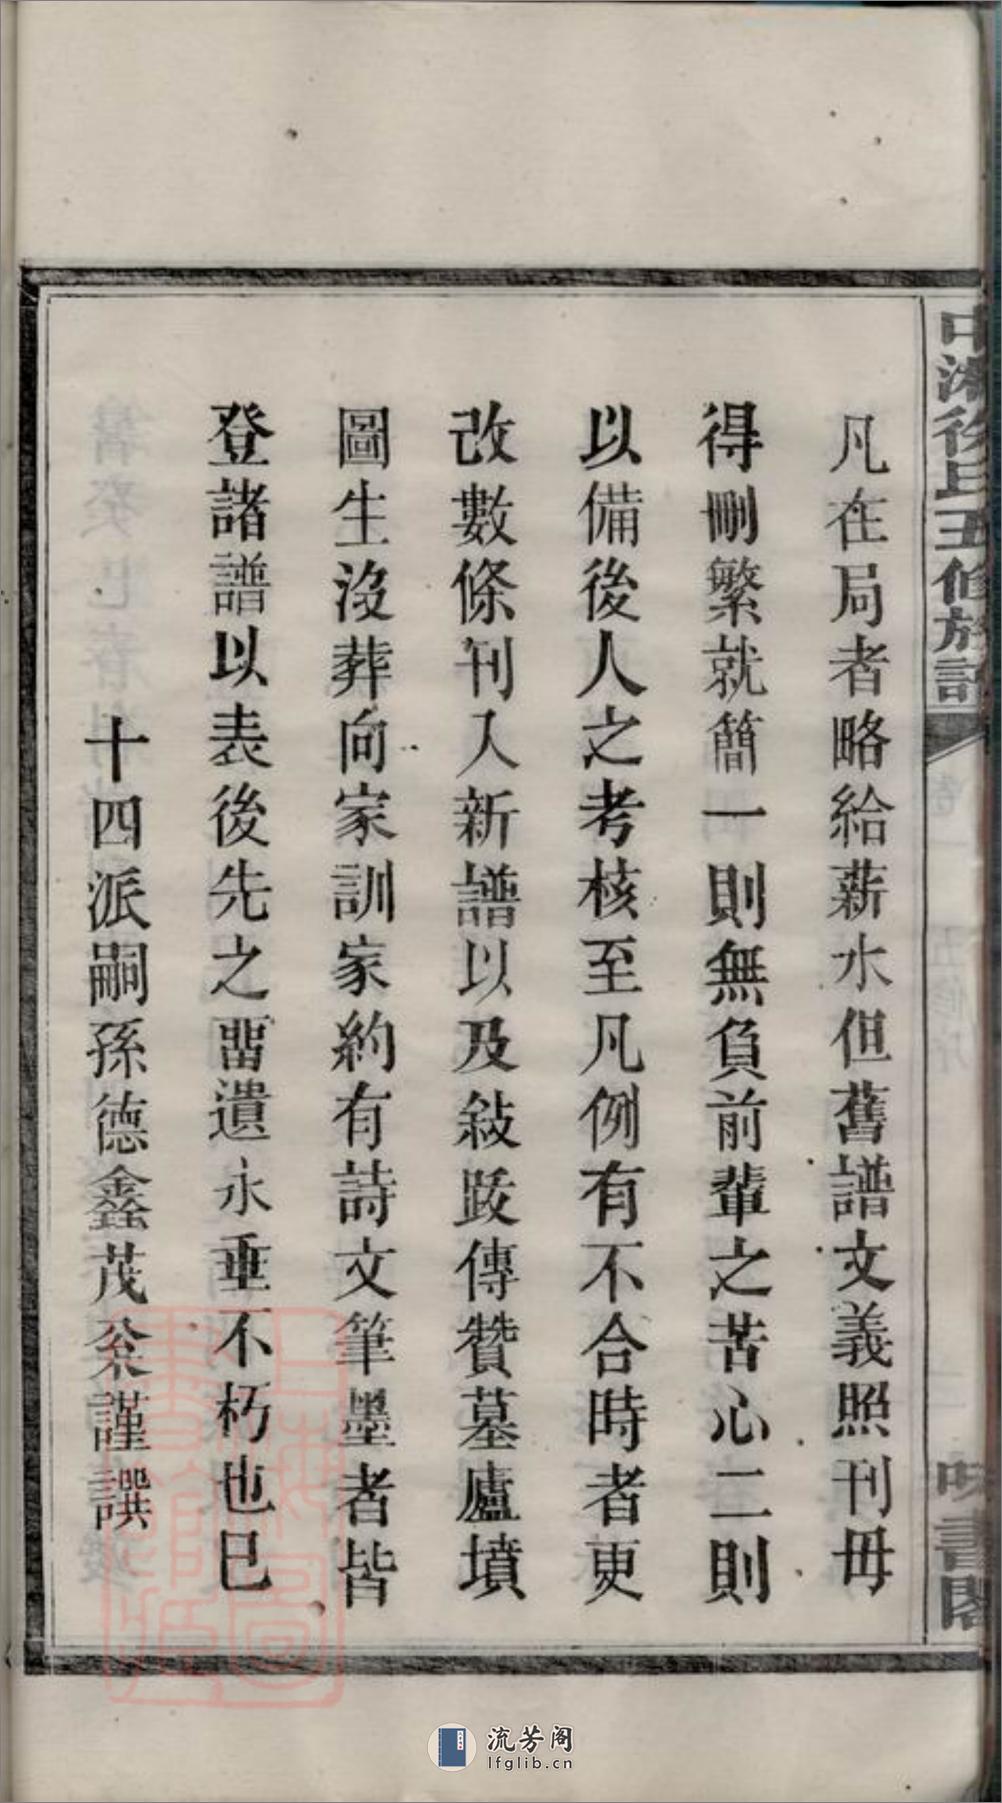 凡在局者略給薪水但舊譜文義照刊毋
得刪繁就簡一則無負前輩之苦心二則
以備後人之考核至凡例有不合時者更
改數條刊入新譜以及敍跋傳贊墓廬墳
圖生沒葬向家訓家約有詩文筆墨者皆
登諸譜以表後先之畱遺永垂不朽也巳
十四派嗣孫德鑫茂
謹譔
五修族譜
書閣
流芳阁
lfglib.cn